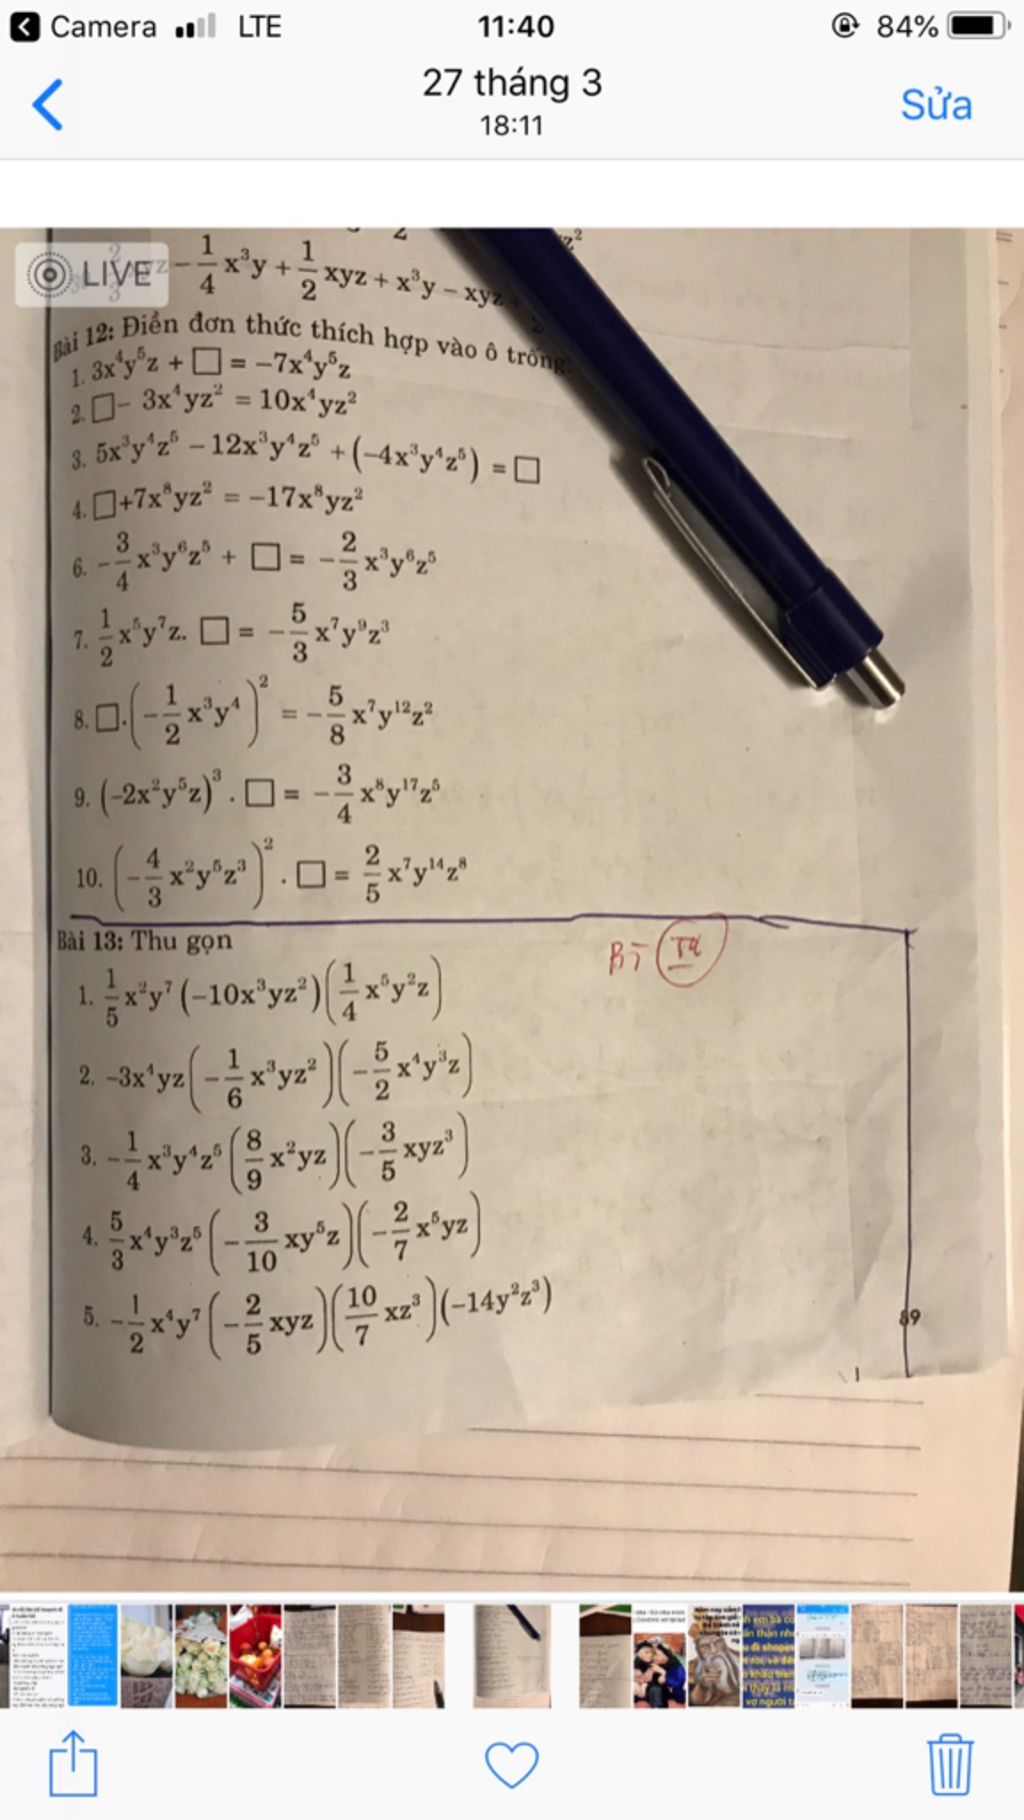 Camera LTE 11:40 84%
27 tháng 3
18:11
Sửa
LIVE
- 1/4 x³y + 1/2 xyz + x³y - xyz
Bài 12: Điền đơn thức thích hợp vào ô trống
1. 3x⁴y⁵z + □ = -7x⁴y⁵z
2. □ - 3x⁴yz² = 10x⁴yz²
3. 5x³y⁴z⁵ - 12x³y⁴z⁵ + (-4x³y⁴z⁵) = □
4. □ + 7x⁸yz² = -17x⁸yz²
6. -3/4 x³y⁶z⁵ + □ = -2/3 x³y⁶z⁵
7. 1/2 x⁵y⁷z. □ = -5/3 x⁷y⁹z³
8. □.(-1/2 x³y⁴)² = -5/8 x⁷y¹²z²
9. (-2x²y⁵z)³ . □ = -3/4 x⁸y¹⁷z⁵
10. (-4/3 x²y⁵z³)² . □ = 2/5 x⁷y¹⁴z⁸
Bài 13: Thu gọn
1. 1/5 x²y⁷ (-10x³yz²)(1/4 x⁵y²z)
2. -3x⁴yz(-1/6 x³yz²)(-5/2 x⁴y³z)
3. -1/4 x³y⁴z⁵(8/9 x²yz)(-3/5 xyz³)
4. 5/3 x⁴y³z⁵(-3/10 xy⁵z)(-2/7 x⁵yz)
5. -1/2 x⁴y⁷(-2/5 xyz)(10/7 xz³)(-14y²z³)
89